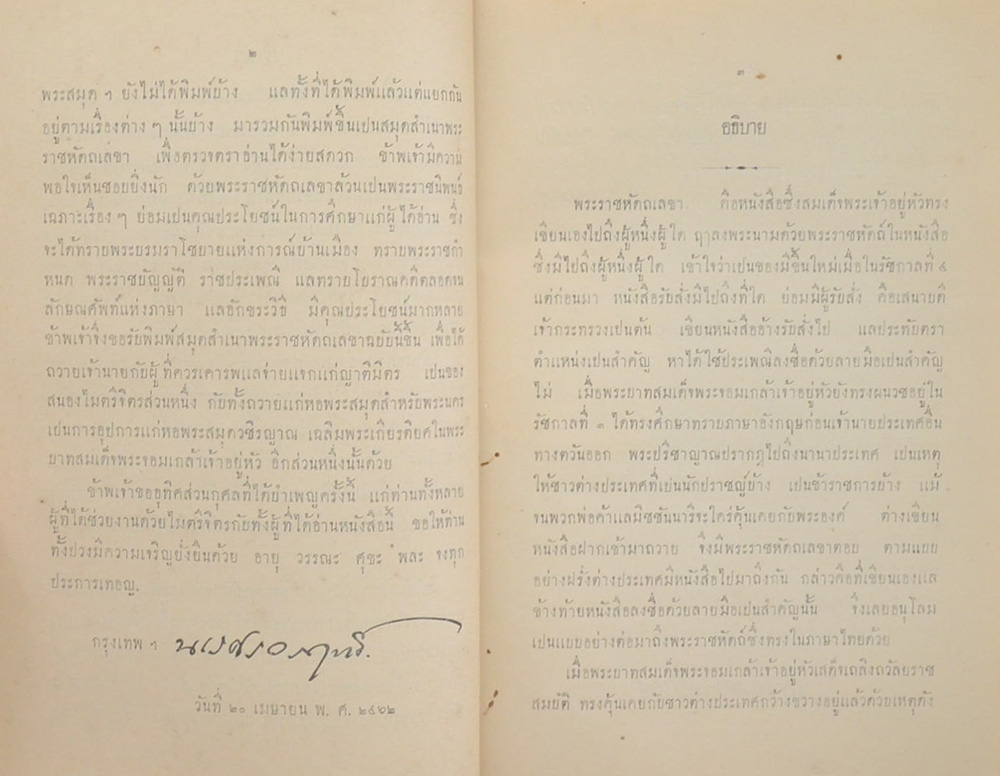 ๒
พระสมุด ฯ ยังไม่ได้พิมพ์บ้าง แลทั้งที่ได้พิมพ์แล้วแต่แยกกัน
อยู่ตามเรื่องต่าง ๆ นั้นบ้าง มารวมกันพิมพ์ขึ้นเปนสมุดสำเนาพระ
ราชหัดถเลขา เพื่อตรวจตราอ่านได้ง่ายสดวก ข้าพเจ้ามีความ
พอใจเห็นชอบยิ่งนัก ด้วยพระราชหัดถเลขาล้วนเปนพระราชนิพนธ์
เฉภาะเรื่อง ๆ ย่อมเปนคุณประโยชน์ในการศึกษาแก่ผู้ได้อ่าน ซึ่ง
จะได้ทราบพระบรมราโชบายแห่งการณ์บ้านเมือง ทราบพระราชกำ
หนด พระราชบัญญัติ ราชประเพณี แลทราบโบราณคดีตลอดจน
ลักษณศัพท์แห่งภาษา แลอักขระวิธี มีคุณประโยชน์มากหลาย
ข้าพเจ้าจึงขอรับพิมพ์สมุดสำเนาพระราชหัดถเลขาฉบับนี้ขึ้น เพื่อได้
ถวายเจ้านายกับผู้ที่ควรเคารพแลจ่ายแจกแก่ญาติมิตร เปนของ
สนองไมตรีจิตรส่วนหนึ่ง กับทั้งถวายแก่หอพระสมุดสำหรับพระนคร
เปนการอุปการแก่หอพระสมุดวชิรญาณ เฉลิมพระเกียรติยศในพระ
บาทสมเด็จพระจอมเกล้าเจ้าอยู่หัว อีกส่วนหนึ่งนั้นด้วย
ข้าพเจ้าขออุทิศส่วนกุศลที่ได้บำเพญครั้งนี้ แก่ท่านทั้งหลาย
ผู้ที่ได้ช่วยงานด้วยไมตรีจิตรกับทั้งผู้ที่ได้อ่านหนังสือนี้ ขอให้ท่าน
ทั้งปวงมีความเจริญยั่งยืนด้วย อายุ วรรณะ ศุขะ พละ จงทุก
ประการเทอญ.
กรุงเทพ ฯ นเรศรวรฤทธิ์.
วันที่ ๒๐ เมษายน พ. ศ. ๒๔๖๒
๓
อธิบาย
พระราชหัดถเลขา คือหนังสือซึ่งสมเด็จพระเจ้าอยู่หัวทรง
เขียนเองไปถึงผู้หนึ่งผู้ใด ฤๅลงพระนามด้วยพระราชหัดถ์ในหนังสือ
ซึ่งมีไปถึงผู้หนึ่งผู้ใด เข้าใจว่าเปนของมีขึ้นใหม่เมื่อในรัชกาลที่ ๔
แต่ก่อนมา หนังสือรับสั่งมีไปถึงที่ใด ย่อมมีผู้รับสั่ง คือเสนาบดี
เจ้ากระทรวงเปนต้น เขียนหนังสืออ้างรับสั่งไป แลประทับตรา
ตำแหน่งเปนสำคัญ หาได้ใช้ประเพณีลงชื่อด้วยลายมือเปนสำคัญ
ไม่ เมื่อพระบาทสมเด็จพระจอมเกล้าเจ้าอยู่หัวยังทรงผนวชอยู่ใน
รัชกาลที่ ๓ ได้ทรงศึกษาทราบภาษาอังกฤษก่อนเจ้านายประเทศอื่น
ทางตวันออก พระปรีชาญาณปรากฎไปถึงนานาประเทศ เปนเหตุ
ให้ชาวต่างประเทศที่เปนนักปราชญ์บ้าง เปนข้าราชการบ้าง แม้
จนพวกพ่อค้าแลมิชชันนารีจะใคร่คุ้นเคยกับพระองค์ ต่างเขียน
หนังสือฝากเข้ามาถวาย จึงมีพระราชหัดถเลขาตอบ ตามแบบ
อย่างฝรั่งต่างประเทศมีหนังสือไปมาถึงกัน กล่าวคือที่เขียนเองแล
ข้างท้ายหนังสือลงชื่อด้วยลายมือเปนสำคัญนั้น จึงเลยอนุโลม
เปนแบบอย่างต่อมาถึงพระราชหัดถ์ซึ่งทรงในภาษาไทยด้วย
เมื่อพระบาทสมเด็จพระจอมเกล้าเจ้าอยู่หัวเสด็จเถลิงถวัลยราช
สมบัติ ทรงคุ้นเคยกับชาวต่างประเทศกว้างขวางอยู่แล้วด้วยเหตุดัง